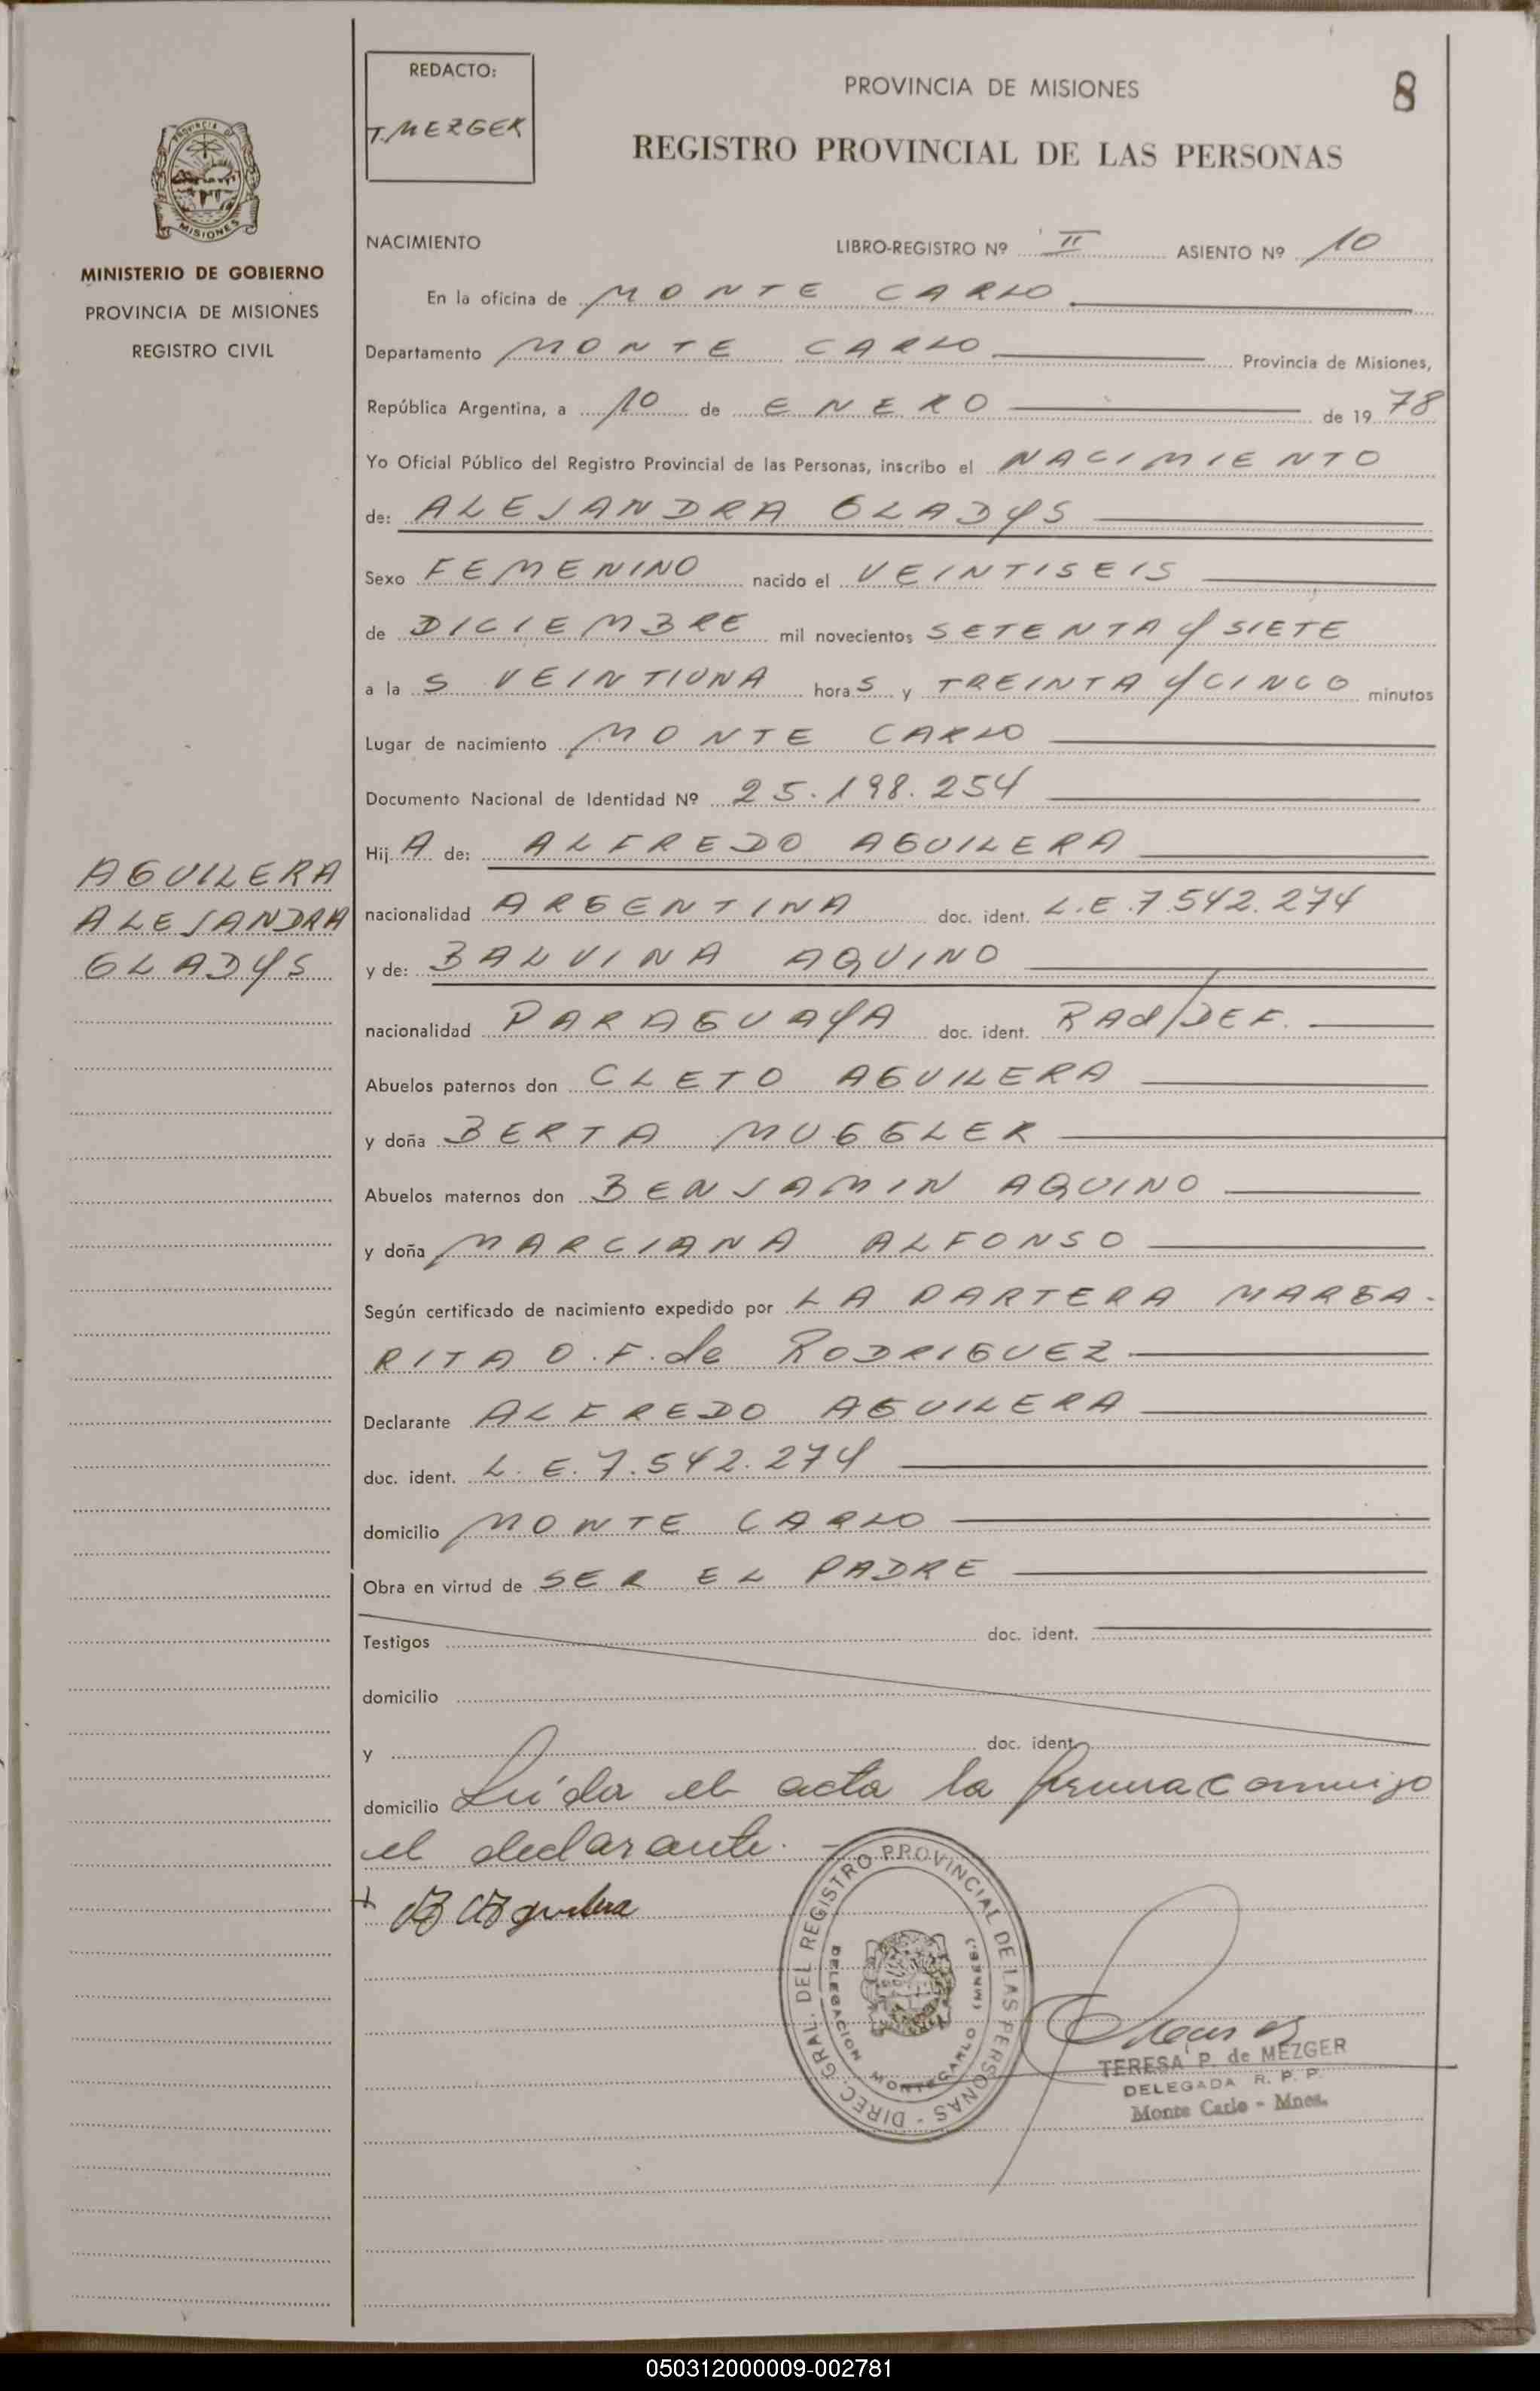 REDACTO:
T. MEZGER
PROVINCIA DE MISIONES
8
REGISTRO PROVINCIAL DE LAS PERSONAS
PROVINCIA DE
MISIONES
MINISTERIO DE GOBIERNO
PROVINCIA DE MISIONES
REGISTRO CIVIL
NACIMIENTO LIBRO-REGISTRO Nº II ASIENTO Nº 10
En la oficina de MONTE CARLO
Departamento MONTE CARLO Provincia de Misiones,
República Argentina, a 10 de ENERO de 19 78
Yo Oficial Público del Registro Provincial de las Personas, inscribo el NACIMIENTO
de: ALEJANDRA GLADYS
Sexo FEMENINO nacido el VEINTISEIS
de DICIEMBRE mil novecientos SETENTA Y SIETE
a la S VEINTIUNA hora S y TREINTA Y CINCO minutos
Lugar de nacimiento MONTE CARLO
Documento Nacional de Identidad Nº 25.198.254
Hij A de: ALFREDO AGUILERA
AGUILERA
ALEJANDRA
GLADYS
nacionalidad ARGENTINA doc. ident. L.E.7.542.274
y de: BALVINA AQUINO
nacionalidad PARAGUAYA doc. ident. RAd/DEF.
Abuelos paternos don CLETO AGUILERA
y doña BERTA MUGGLER
Abuelos maternos don BENJAMIN AQUINO
y doña MARCIANA ALFONSO
Según certificado de nacimiento expedido por LA PARTERA MARGA-
RITA O.F. de RODRIGUEZ
Declarante ALFREDO AGUILERA
doc. ident. L.E.7.542.274
domicilio MONTE CARLO
Obra en virtud de SER EL PADRE
Testigos doc. ident.
domicilio
y doc. ident.
domicilio Leída el acta la firma conmigo
el declarante.-
DIREC. GRAL. DEL REGISTRO PROVINCIAL DE LAS PERSONAS -
DELEGACION MONTECARLO (MNES.)
TERESA P. de MEZGER
DELEGADA R. P. P.
Monte Carlo - Mnes.
050312000009-002781